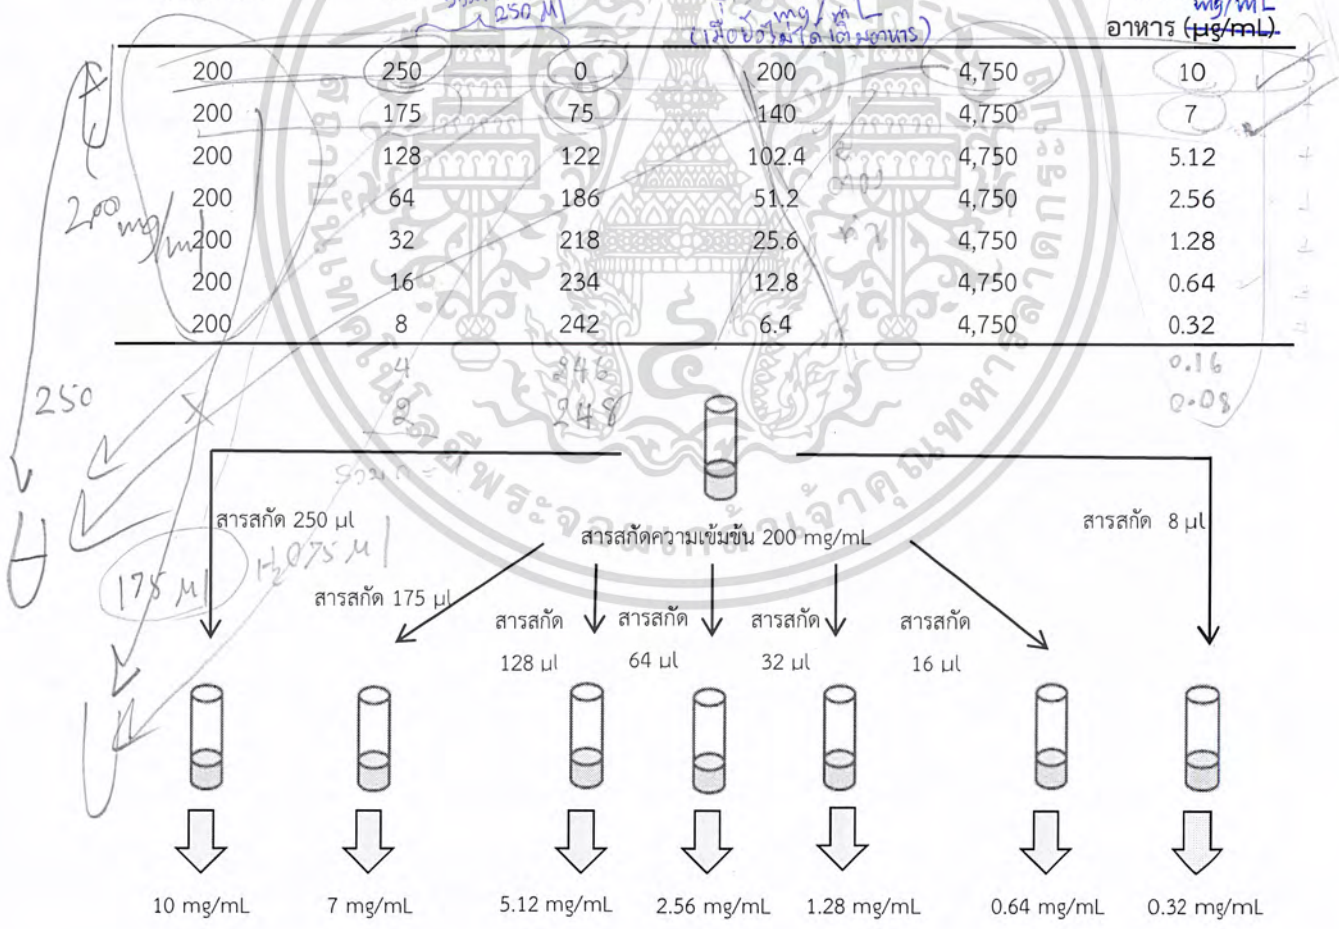 250 µl
mg/mL
mg/mL
(เมื่อยังไม่ได้เติมอาหาร)
อาหาร (µg/mL)
200 250 0 200 4,750 10
200 175 75 140 4,750 7
200 128 122 102.4 4,750 5.12
200 64 186 51.2 4,750 2.56
200 32 218 25.6 4,750 1.28
200 16 234 12.8 4,750 0.64
200 8 242 6.4 4,750 0.32
200 mg/ml
4 246 0.16
2 248 0.08
250
สารสกัด 250 µl
สารสกัด 8 µl
สารสกัดความเข้มข้น 200 mg/mL
175 µl
H₂O 75 µl
สารสกัด 175 µl
สารสกัด สารสกัด สารสกัด สารสกัด
128 µl 64 µl 32 µl 16 µl
10 mg/mL 7 mg/mL 5.12 mg/mL 2.56 mg/mL 1.28 mg/mL 0.64 mg/mL 0.32 mg/mL